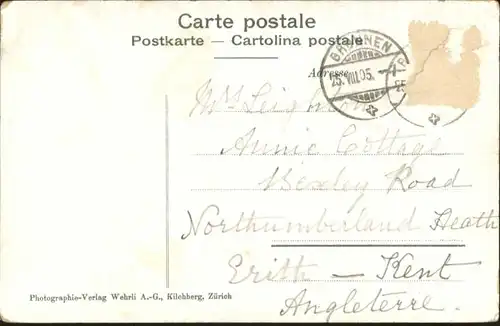 Carte postale
Postkarte — Cartolina postale
Adresse
BRUNNEN
25.VIII.05.
Mrs Leigh
Annie Cottage
Bexley Road
Northumberland Heath
Erith — Kent
Angleterre.
Photographie-Verlag Wehrli A.-G., Kilchberg, Zürich